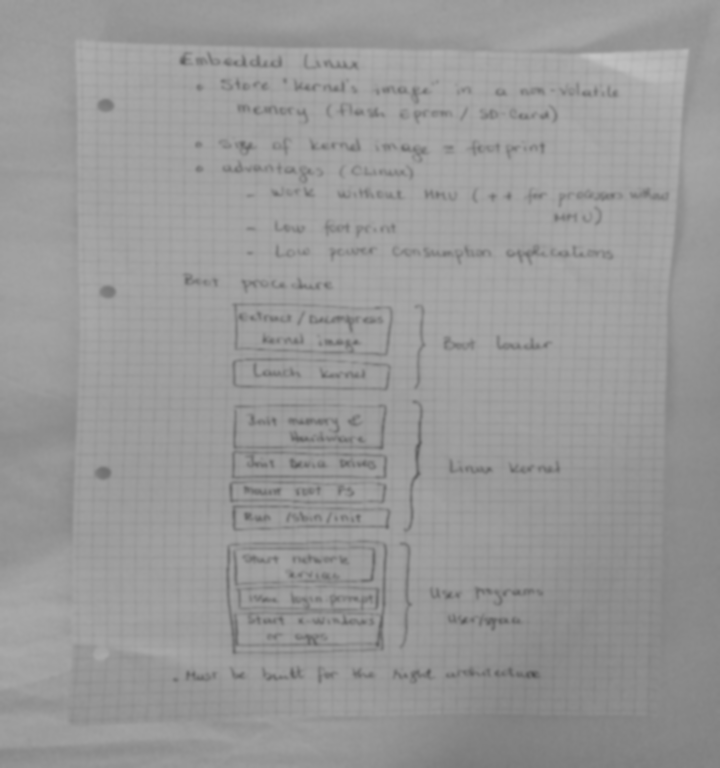 Embedded Linux
• Store "kernel's image" in a non-volatile
memory (flash eprom / SD-Card)
• Size of kernel image = footprint
• advantages (CLinux)
- Work without MMU (++ for processors without
MMU)
- Low footprint
- Low power consumption applications
Boot procedure
extract/decompress
kernel image
Lauch kernel
Boot loader
Init memory &
Hardware
Init Device Drivers
Mount root FS
Run /sbin/init
Linux kernel
Start network
services
Issue login prompt
Start x-windows
or apps
User programs
• Must be built for the right architecture